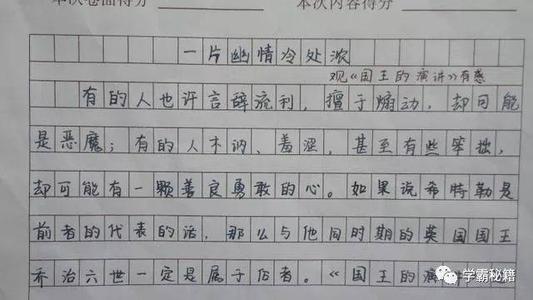 本次卷面得分 本次内容得分
一片幽情冷处浓
观《国王的演讲》有感
有的人也许言辞流利，擅于煽动，却可能
是恶魔；有的人木讷、羞涩，甚至有些笨拙，
却可能有一颗善良勇敢的心。如果说希特勒是
前者的代表的话，那么与他同时期的英国国王
乔治六世一定是属于后者。《国王的演
学霸秘籍